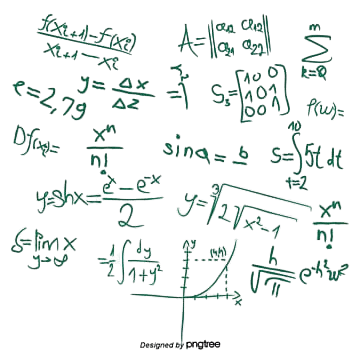 f(x_{i+1}) - f(x_i) / x_{i+1} - x_i
A = ||a_{12} a_{12} / a_{21} a_{22}||
m Σ k=0
e = 2,7g
y = Δx / Δz = 1
S_3 = [1 0 0 / 1 0 1 / 0 0 1]
P(w) =
Df(x) = x^n / n!
sin a = b
S = ∫ 10 t=2 5t dt
y = shx = e^x - e^{-x} / 2
y = ∛2√x²-1
x^n / n!
S = lim x y→∞
= 1/2 ∫ dy / 1+y²
y
(4;4)
x
h / √π e^{-h²w²}
Designed by pngtree